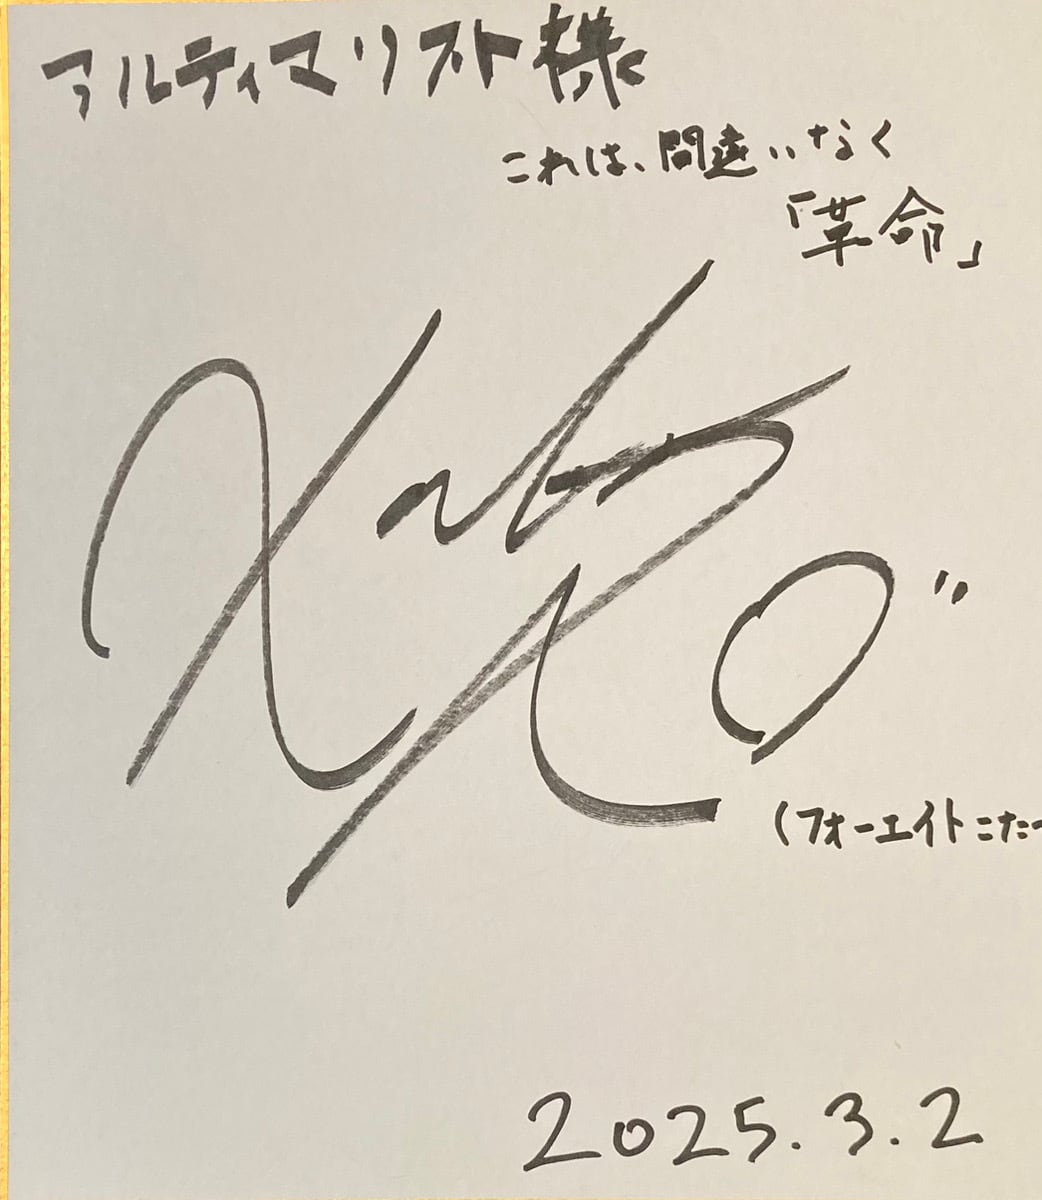 アルティマリスト様
これは、間違いなく
「革命」
(フォーエイトこたつ
2025.3.2